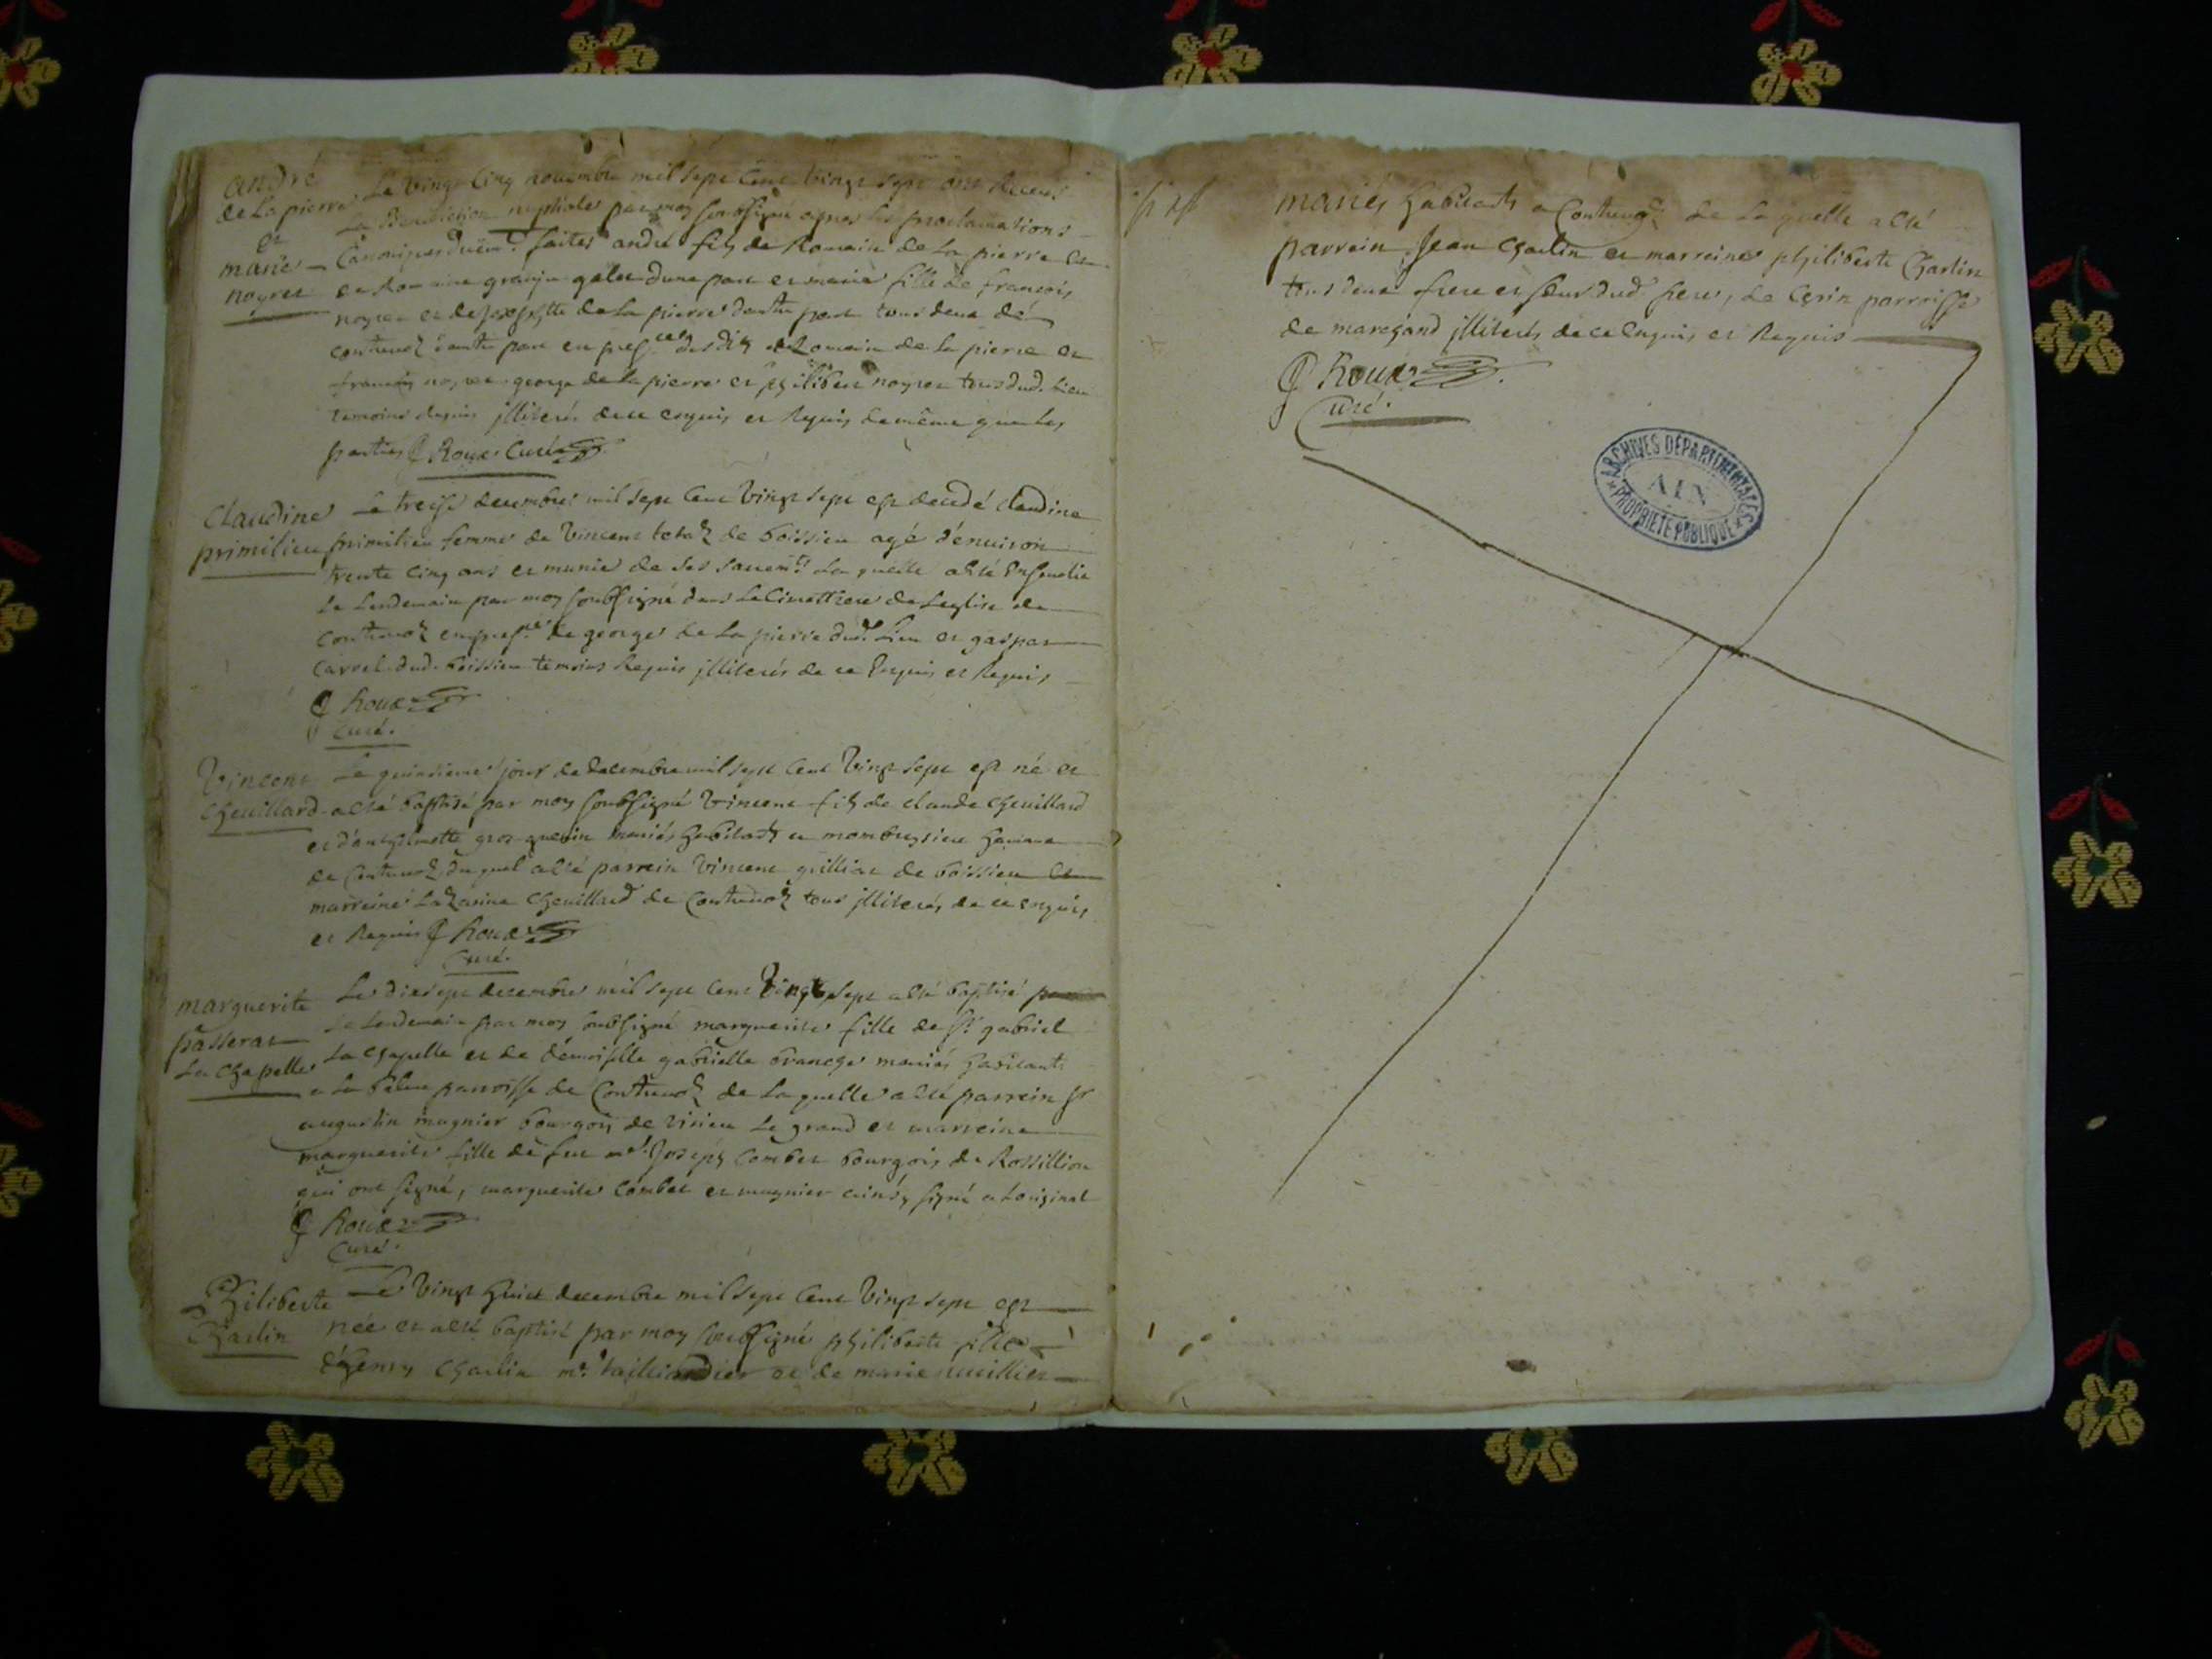 andré
de la pierre
et
marie
noyret
Le vingt cinq novembre mil sept cent vingt sept ont receu
la Benediction nuptiale par moy soubsigné apres les proclamations
Canoniques duëmt faites andré fils de Romain de la pierre et
de Romaine granju galee dune part et marie fille de francois
noyret et de josephte de la pierre dautre part tous deux de
contrevoz dautre part en presce des dits Romain de la pierre et
francois noyret george de la pierre et philibert noyret tous dud. lieu
temoins requis illiterés de ce enquis et requis de même que les
parties Roux Curé
Claudine
primilieu
Le treise decembre mil sept cent vingt sept est decedé claudine
primilieu femme de vincent tetaz de boissieu agé d'enuiron
trente cinq ans et munie de ses sacremts La quelle a esté Ensevelie
le Lendemain par moy soubsigné dans Le Cimettiere de Leglise de
contrevoz en presce de george de la pierre dud. Lieu et gaspar
carrel dud. boissieu temoins Requis illiterés de ce Enquis et Requis
Roux
Curé.
Vincent
Cheuillard
Le quinsieme jour de decembre mil sept cent vingt sept est né et
a esté baptisé par moy soubsigné vincent fils de claude cheuillard
et d'anthelmette gros guerin mariés habitants a mombreysieu hameau
de Contrevoz du quel a esté parrein vincent guilliat de boissieu et
marreine Lazarine cheuillard de Contrevoz tous illiterés de ce enquis
et Requis Roux
Curé.
marguerite
passerat
La chapelle
Le diesept decembre mil sept cent vingt sept a esté baptisé
le Lendemain par moy soubsigné marguerite fille de sr gabriel
La chapelle et de démoiselle gabrielle brancge mariés habitants
a La balme parroisse de Contrevoz de La quelle a esté parrein sr
augustin mugnier bourgois de virieu Le grand et marreine
marguerite fille de feu mr Joseph Combet bourgois de Rossillion
qui ont signé, marguerite Combet et mugnier ainsy signé a L'original
Roux
Curé.
Philiberte
Charlin
Le vingt huict decembre mil sept cent vingt sept est
née et a esté baptisé par moy soubsigné philiberte fille
d'henry charlin me tailliandier et de marie cueillier
mariés habitants a Contrevoz de La quelle a esté
parrein Jean charlin et marreine philiberte Charlin
tous deux frere et sœur dud. henry de Cerin parroisse
de maregand illiterés de ce Enquis et Requis
Roux
Curé.
ARCHIVES DÉPARTEMENTALES
AIN
PROPRIÉTÉ PUBLIQUE